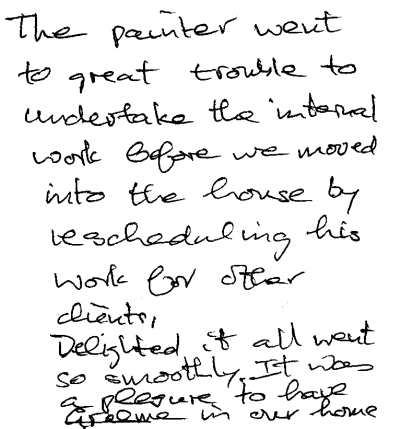 The painter went
to great trouble to
undertake the internal
work before we moved
into the house by
rescheduling his
work for other
clients,
Delighted it all went
so smoothly. It was
a plesure to have
Graeme in our home